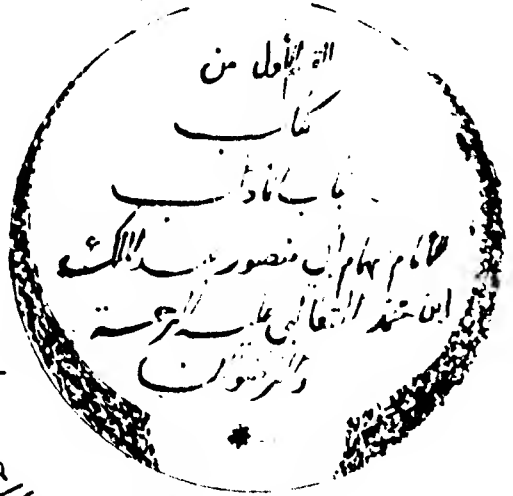 الأول من
كتاب
لباب الآداب
للامام همام أبي منصور عبد الملك
ابن محمد الثعالبي عليه الرحمة
والرضوان